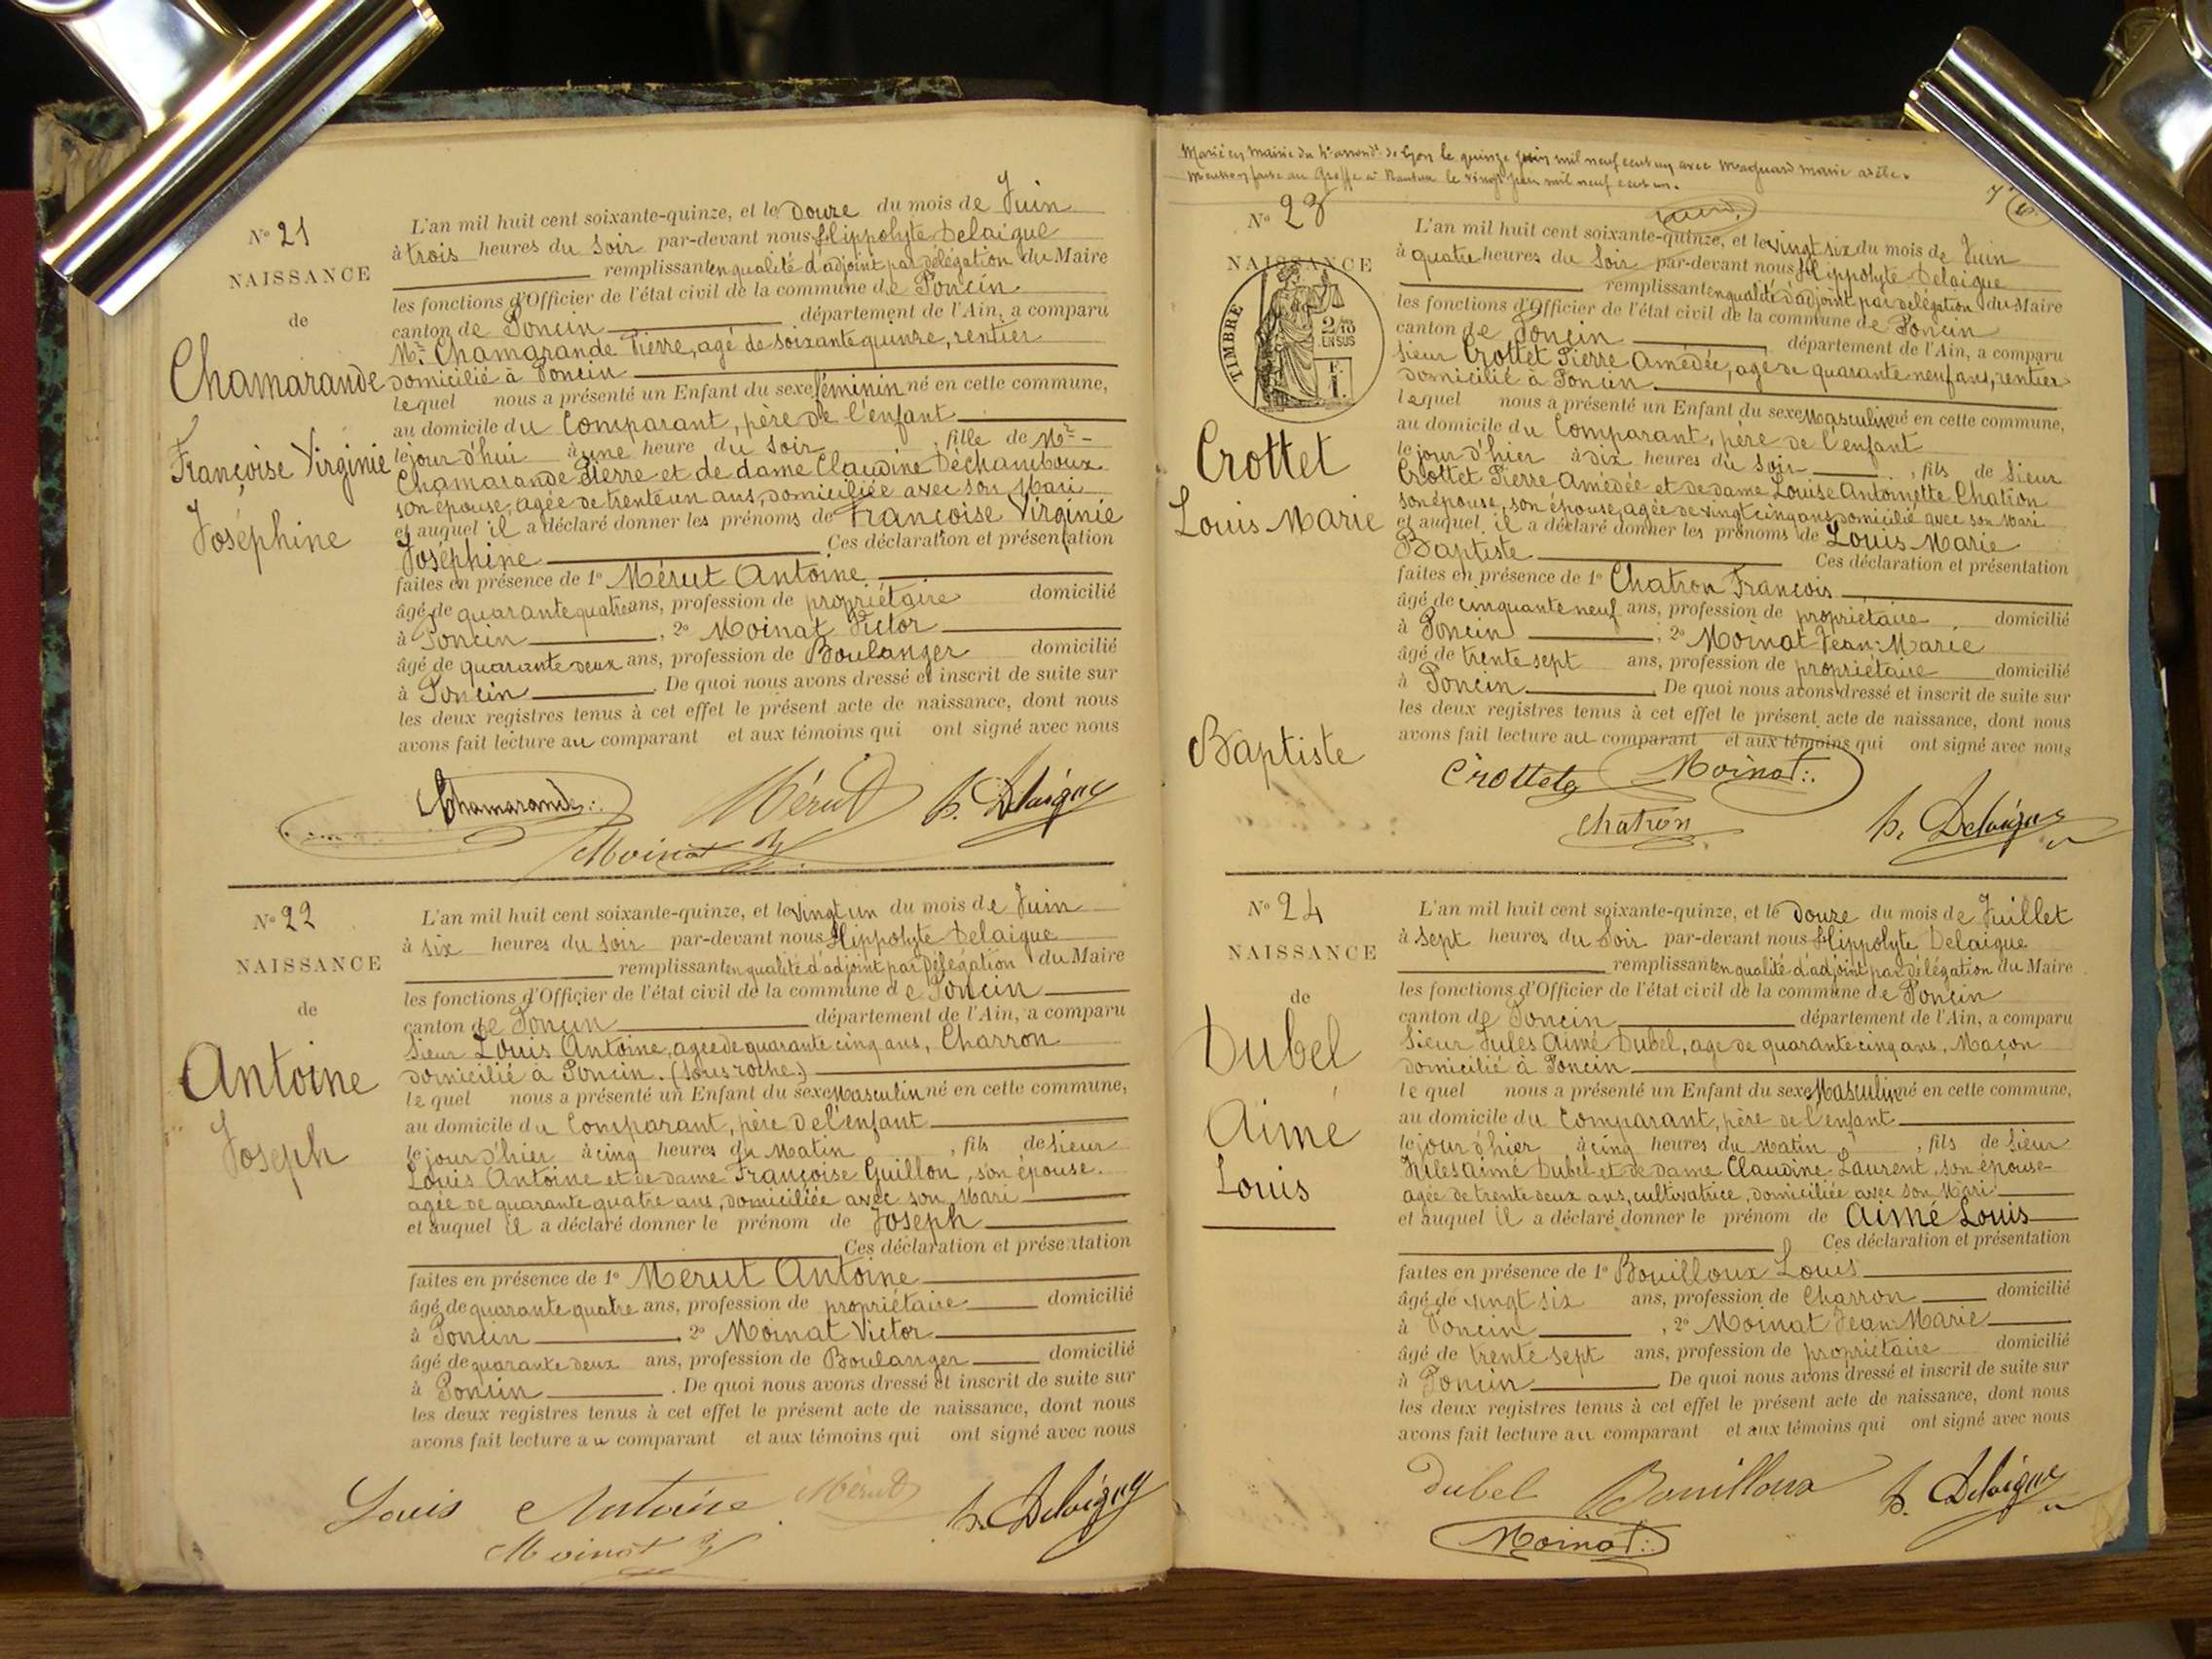 N° 21
NAISSANCE
de
Chamarande
Françoise Virginie
Joséphine
L'an mil huit cent soixante-quinze, et le douze du mois de Juin
à trois heures du soir par-devant nous Hippolyte Delaigue
remplissant en qualité d'adjoint par délégation du Maire
les fonctions d'Officier de l'état civil de la commune de Poncin
canton de Poncin département de l'Ain, a comparu
Mr. Chamarande Pierre, agé de soixante quinze, rentier
domicilié à Poncin
lequel nous a présenté un Enfant du sexe féminin né en cette commune,
au domicile du Comparant, père de l'enfant
le jour d'hui à une heure du soir, fille de Mr
Chamarande Pierre et de dame Claudine Déchamboux
son épouse, agée de trente un ans, domiciliée avec son Mari
et auquel il a déclaré donner les prénoms de Françoise Virginie
Joséphine Ces déclaration et présentation
faites en présence de 1° Mérut Antoine
âgé de quarante quatre ans, profession de propriétaire domicilié
à Poncin, 2° Moinat Victor
âgé de quarante deux ans, profession de Boulanger domicilié
à Poncin. De quoi nous avons dressé et inscrit de suite sur
les deux registres tenus à cet effet le présent acte de naissance, dont nous
avons fait lecture au comparant et aux témoins qui ont signé avec nous
Chamarande Mérut h. Delaigue
Moinat
N° 22
NAISSANCE
de
Antoine
Joseph
L'an mil huit cent soixante-quinze, et le vingt un du mois de Juin
à six heures du soir par-devant nous Hippolyte Delaigue
remplissant en qualité d'adjoint par Délégation du Maire
les fonctions d'Officier de l'état civil de la commune de Poncin
canton de Poncin département de l'Ain, a comparu
Sieur Louis Antoine, agée de quarante cinq ans, Charron
domicilié à Poncin. (Sous roche.)
lequel nous a présenté un Enfant du sexe Masculin né en cette commune,
au domicile du Comparant, père de l'enfant
le jour d'hier à cinq heures du Matin, fils de Sieur
Louis Antoine et de dame Françoise Guillon, son épouse.
agée de quarante quatre ans, domiciliée avec son Mari
et auquel il a déclaré donner le prénom de Joseph
Ces déclaration et présentation
faites en présence de 1° Merut Antoine
âgé de quarante quatre ans, profession de propriétaire domicilié
à Poncin 2° Moinat Victor
âgé de quarante deux ans, profession de Boulanger domicilié
à Poncin. De quoi nous avons dressé et inscrit de suite sur
les deux registres tenus à cet effet le présent acte de naissance, dont nous
avons fait lecture au comparant et aux témoins qui ont signé avec nous
Louis Antoine Mérut h. Delaigue
Moinat
Marié en mairie du 4e arrondt de Lyon le quinze juin mil neuf cent un avec marie
Mention faite au Greffe à Nantua le vingt juin mil neuf cent un.
N° 23
NAISSANCE
TIMBRE
2/10
EN SUS
F.
1.
Crottet
Louis Marie
Baptiste
L'an mil huit cent soixante-quinze, et le vingt six du mois de Juin
à quatre heures du Soir par-devant nous Hippolyte Delaigue
remplissant en qualité d'adjoint par délégation du Maire
les fonctions d'Officier de l'état civil de la commune de Poncin
canton de Poncin département de l'Ain, a comparu
Sieur Crottet Pierre Amédée, agé de quarante neuf ans, rentier
domicilié à Poncin
lequel nous a présenté un Enfant du sexe Masculin né en cette commune,
au domicile du Comparant, père de l'enfant
le jour d'hier à dix heures du Soir, fils de Sieur
Crottet Pierre Amédée et de dame Louise Antoinette Chatron
son épouse, son épouse, agée de vingt cinq ans domicilié avec son Mari
et auquel il a déclaré donner les prénoms de Louis Marie
Baptiste Ces déclaration et présentation
faites en présence de 1° Chatron François
âgé de cinquante neuf ans, profession de propriétaire domicilié
à Poncin; 2° Moinat Jean-Marie
âgé de trente sept ans, profession de propriétaire domicilié
à Poncin. De quoi nous avons dressé et inscrit de suite sur
les deux registres tenus à cet effet le présent acte de naissance, dont nous
avons fait lecture au comparant et aux témoins qui ont signé avec nous
Crottet Moinat
Chatron h. Delaigue
N° 24
NAISSANCE
de
Dubel
Aimé
Louis
L'an mil huit cent soixante-quinze, et le Douze du mois de Juillet
à sept heures du soir par-devant nous Hippolyte Delaigue
remplissant en qualité d'adjoint par délégation du Maire
les fonctions d'Officier de l'état civil de la commune de Poncin
canton de Poncin département de l'Ain, a comparu
Sieur Jules Aimé Dubel, agé de quarante cinq ans, Maçon
domicilié à Poncin
lequel nous a présenté un Enfant du sexe Masculin né en cette commune,
au domicile du Comparant, père de l'enfant
le jour d'hier à cinq heures du Matin, fils de Sieur
Jules Aimé Dubel et de Dame Claudine Laurent, son épouse
agée de trente deux ans, cultivatrice, domiciliée avec son Mari
et auquel il a déclaré donner le prénom de Aimé Louis
Ces déclaration et présentation
faites en présence de 1° Bouilloux Louis
âgé de vingt six ans, profession de Charron domicilié
à Poncin, 2° Moinat Jean-Marie
âgé de trente sept ans, profession de propriétaire domicilié
à Poncin De quoi nous avons dressé et inscrit de suite sur
les deux registres tenus à cet effet le présent acte de naissance, dont nous
avons fait lecture au comparant et aux témoins qui ont signé avec nous
Dubel Bouilloux h. Delaigue
Moinat